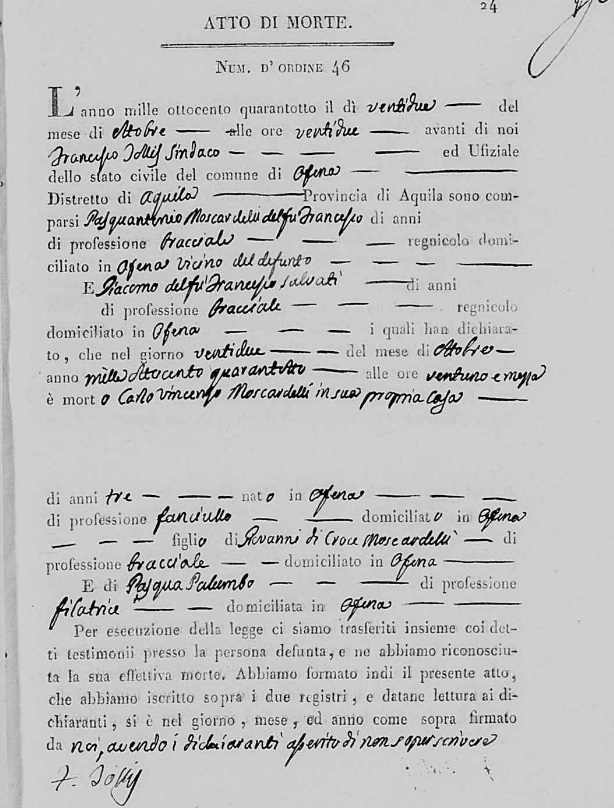 24
ATTO DI MORTE.
NUM. D' ORDINE 46
L' anno mille ottocento quarantotto il dì ventidue — del
mese di Ottobre — alle ore ventidue — avanti di noi
Francesco Jollis Sindaco — — — — ed Ufiziale
dello stato civile del comune di Ofena — —
Distretto di Aquila — Provincia di Aquila sono com-
parsi Pasquantonio Moscardelli del fu Francesco di anni
di professione bracciale — — — regnicolo domi-
ciliato in Ofena vicino del defunto — — — —
E Giacomo del fu Francesco Salvati — di anni
di professione bracciale — — — regnicolo
domiciliato in Ofena — — — i quali han dichiara-
to, che nel giorno ventidue — — del mese di Ottobre —
anno mille Ottocento quarantotto — alle ore ventuno e mezza
è mort o Carlo Vincenzo Moscardelli in sua propria casa —
di anni tre — — — nato in Ofena — — —
di professione fanciullo — — domiciliato in Ofena
— — — figlio di Giovanni di Croce Moscardelli — di
professione bracciale — — domiciliato in Ofena —
E di Pasqua Palumbo — — — di professione
filatrice — — domiciliata in Ofena — —
Per esecuzione della legge ci siamo trasferiti insieme coi det-
ti testimonii presso la persona defunta, e ne abbiamo riconosciu-
ta la sua effettiva morte. Abbiamo formato indi il presente atto,
che abbiamo iscritto sopra i due registri, e datane lettura ai di-
chiaranti, si è nel giorno, mese, ed anno come sopra firmato
da noi, avendo i dichiaranti asserito di non saper scrivere
F. Jollis